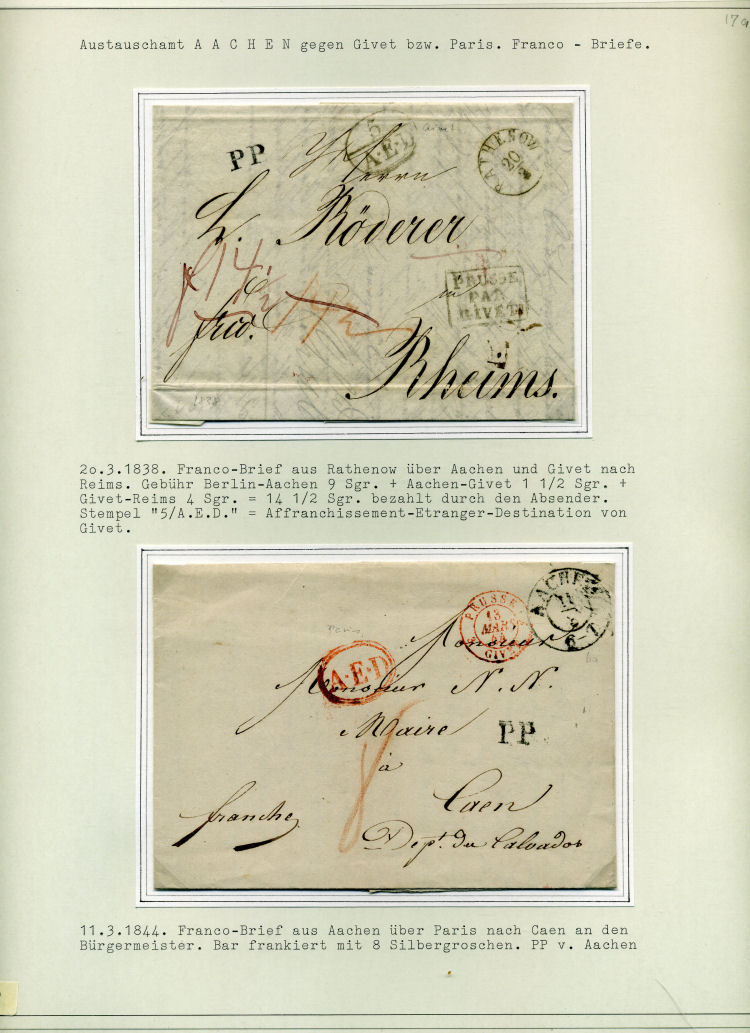 17a
Austauschamt A A C H E N gegen Givet bzw. Paris. Franco - Briefe.
PP
5
A.E.D.
RATHENOW
20/3
Herrn
L. Röderer
f 14 1/2
14 1/2
in
PRUSSE
PAR
GIVET
frco.
Rheims.
2o.3.1838. Franco-Brief aus Rathenow über Aachen und Givet nach
Reims. Gebühr Berlin-Aachen 9 Sgr. + Aachen-Givet 1 1/2 Sgr. +
Givet-Reims 4 Sgr. = 14 1/2 Sgr. bezahlt durch den Absender.
Stempel "5/A.E.D." = Affranchissement-Etranger-Destination von
Givet.
PRUSSE
13
MARS
44
GIVET
AACHEN
11
3
6-7
Paris
A.E.D.
Monsieur
Monsieur N. N.
Maire
PP
à
8
Caen
franche
Dept. du Calvados
11.3.1844. Franco-Brief aus Aachen über Paris nach Caen an den
Bürgermeister. Bar frankiert mit 8 Silbergroschen. PP v. Aachen